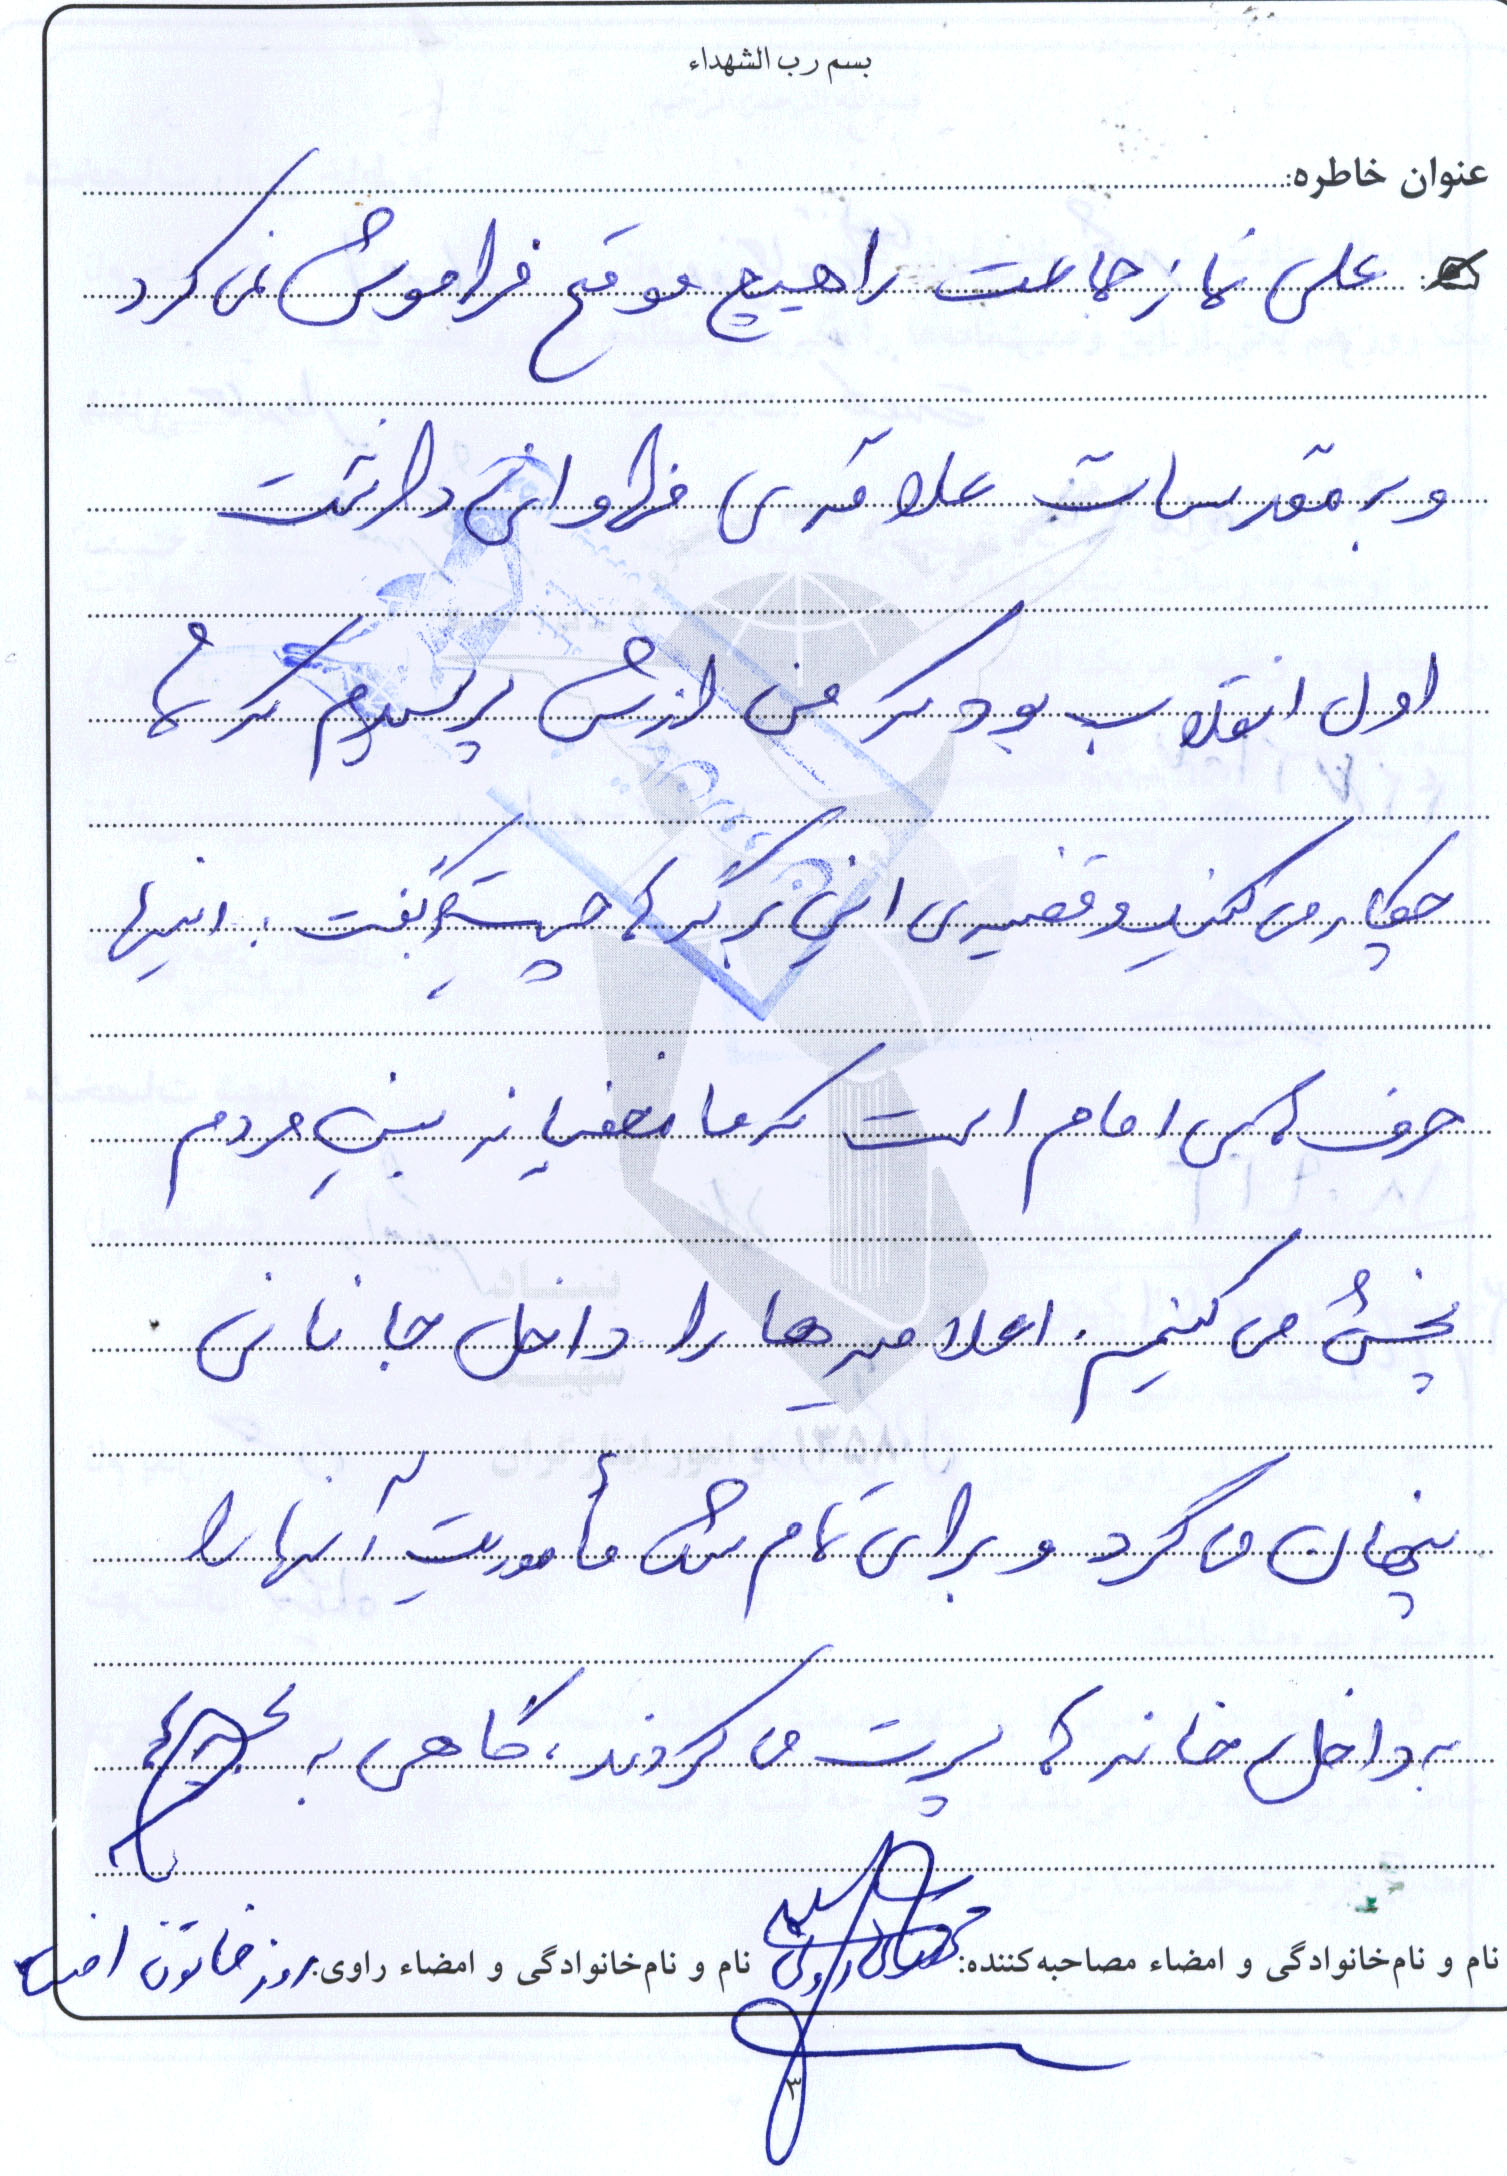 بسم رب الشهداء
عنوان خاطره:
علی نماز جماعت را هیچ موقع فراموش نمی کرد
و به مقدسات علاقه ی فراوانی داشت
اول انقلاب بود که من ازش پرسیدم که شما
چکار می کنید و قضیه ی این برگه ها چیست گفت: اینها
حرف های امام است که ما مخفیانه بین مردم
پخش می کنیم. اعلامیه ها را داخل جانانی
پنهان می کرد و برای تمام شدن مأموریت آنها را
به داخل خانه ها پرت می کردند، گاهی به بچه ها
نام و نام‌خانوادگی و امضاء مصاحبه‌کننده: نام و نام‌خانوادگی و امضاء راوی:
۳